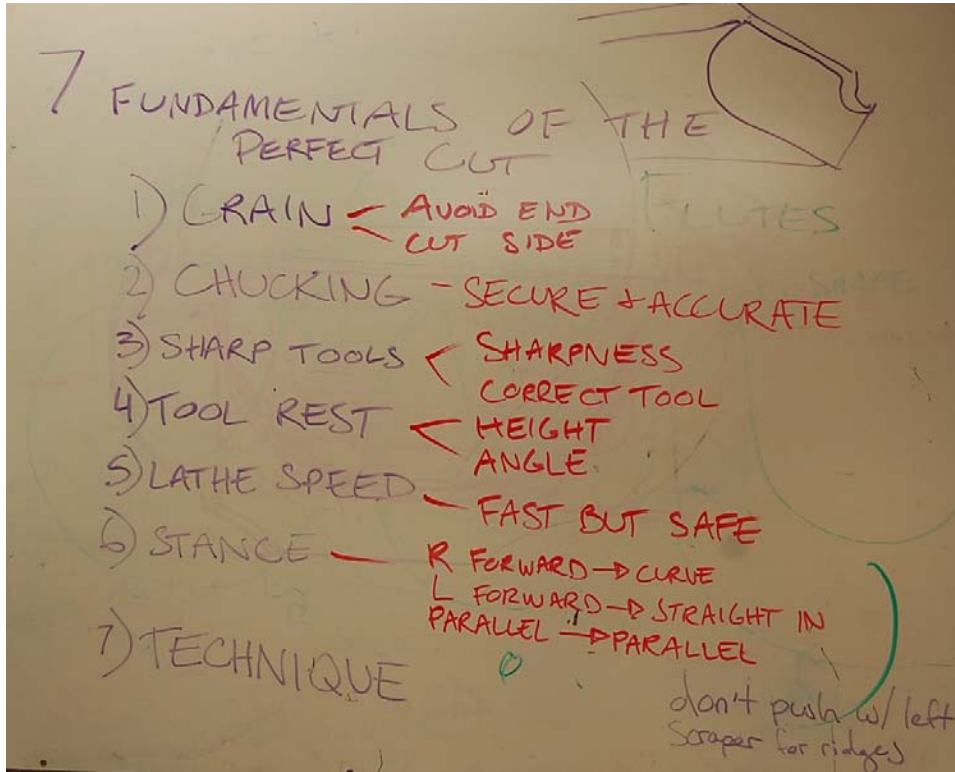 7 FUNDAMENTALS OF THE
PERFECT CUT
1) GRAIN - AVOID END
CUT SIDE
2) CHUCKING - SECURE + ACCURATE
3) SHARP TOOLS SHARPNESS
CORRECT TOOL
4) TOOL REST HEIGHT
ANGLE
5) LATHE SPEED - FAST BUT SAFE
6) STANCE - R FORWARD → CURVE
L FORWARD → STRAIGHT IN
PARALLEL → PARALLEL
7) TECHNIQUE
FLUTES
don't push w/ left
Scraper for ridges